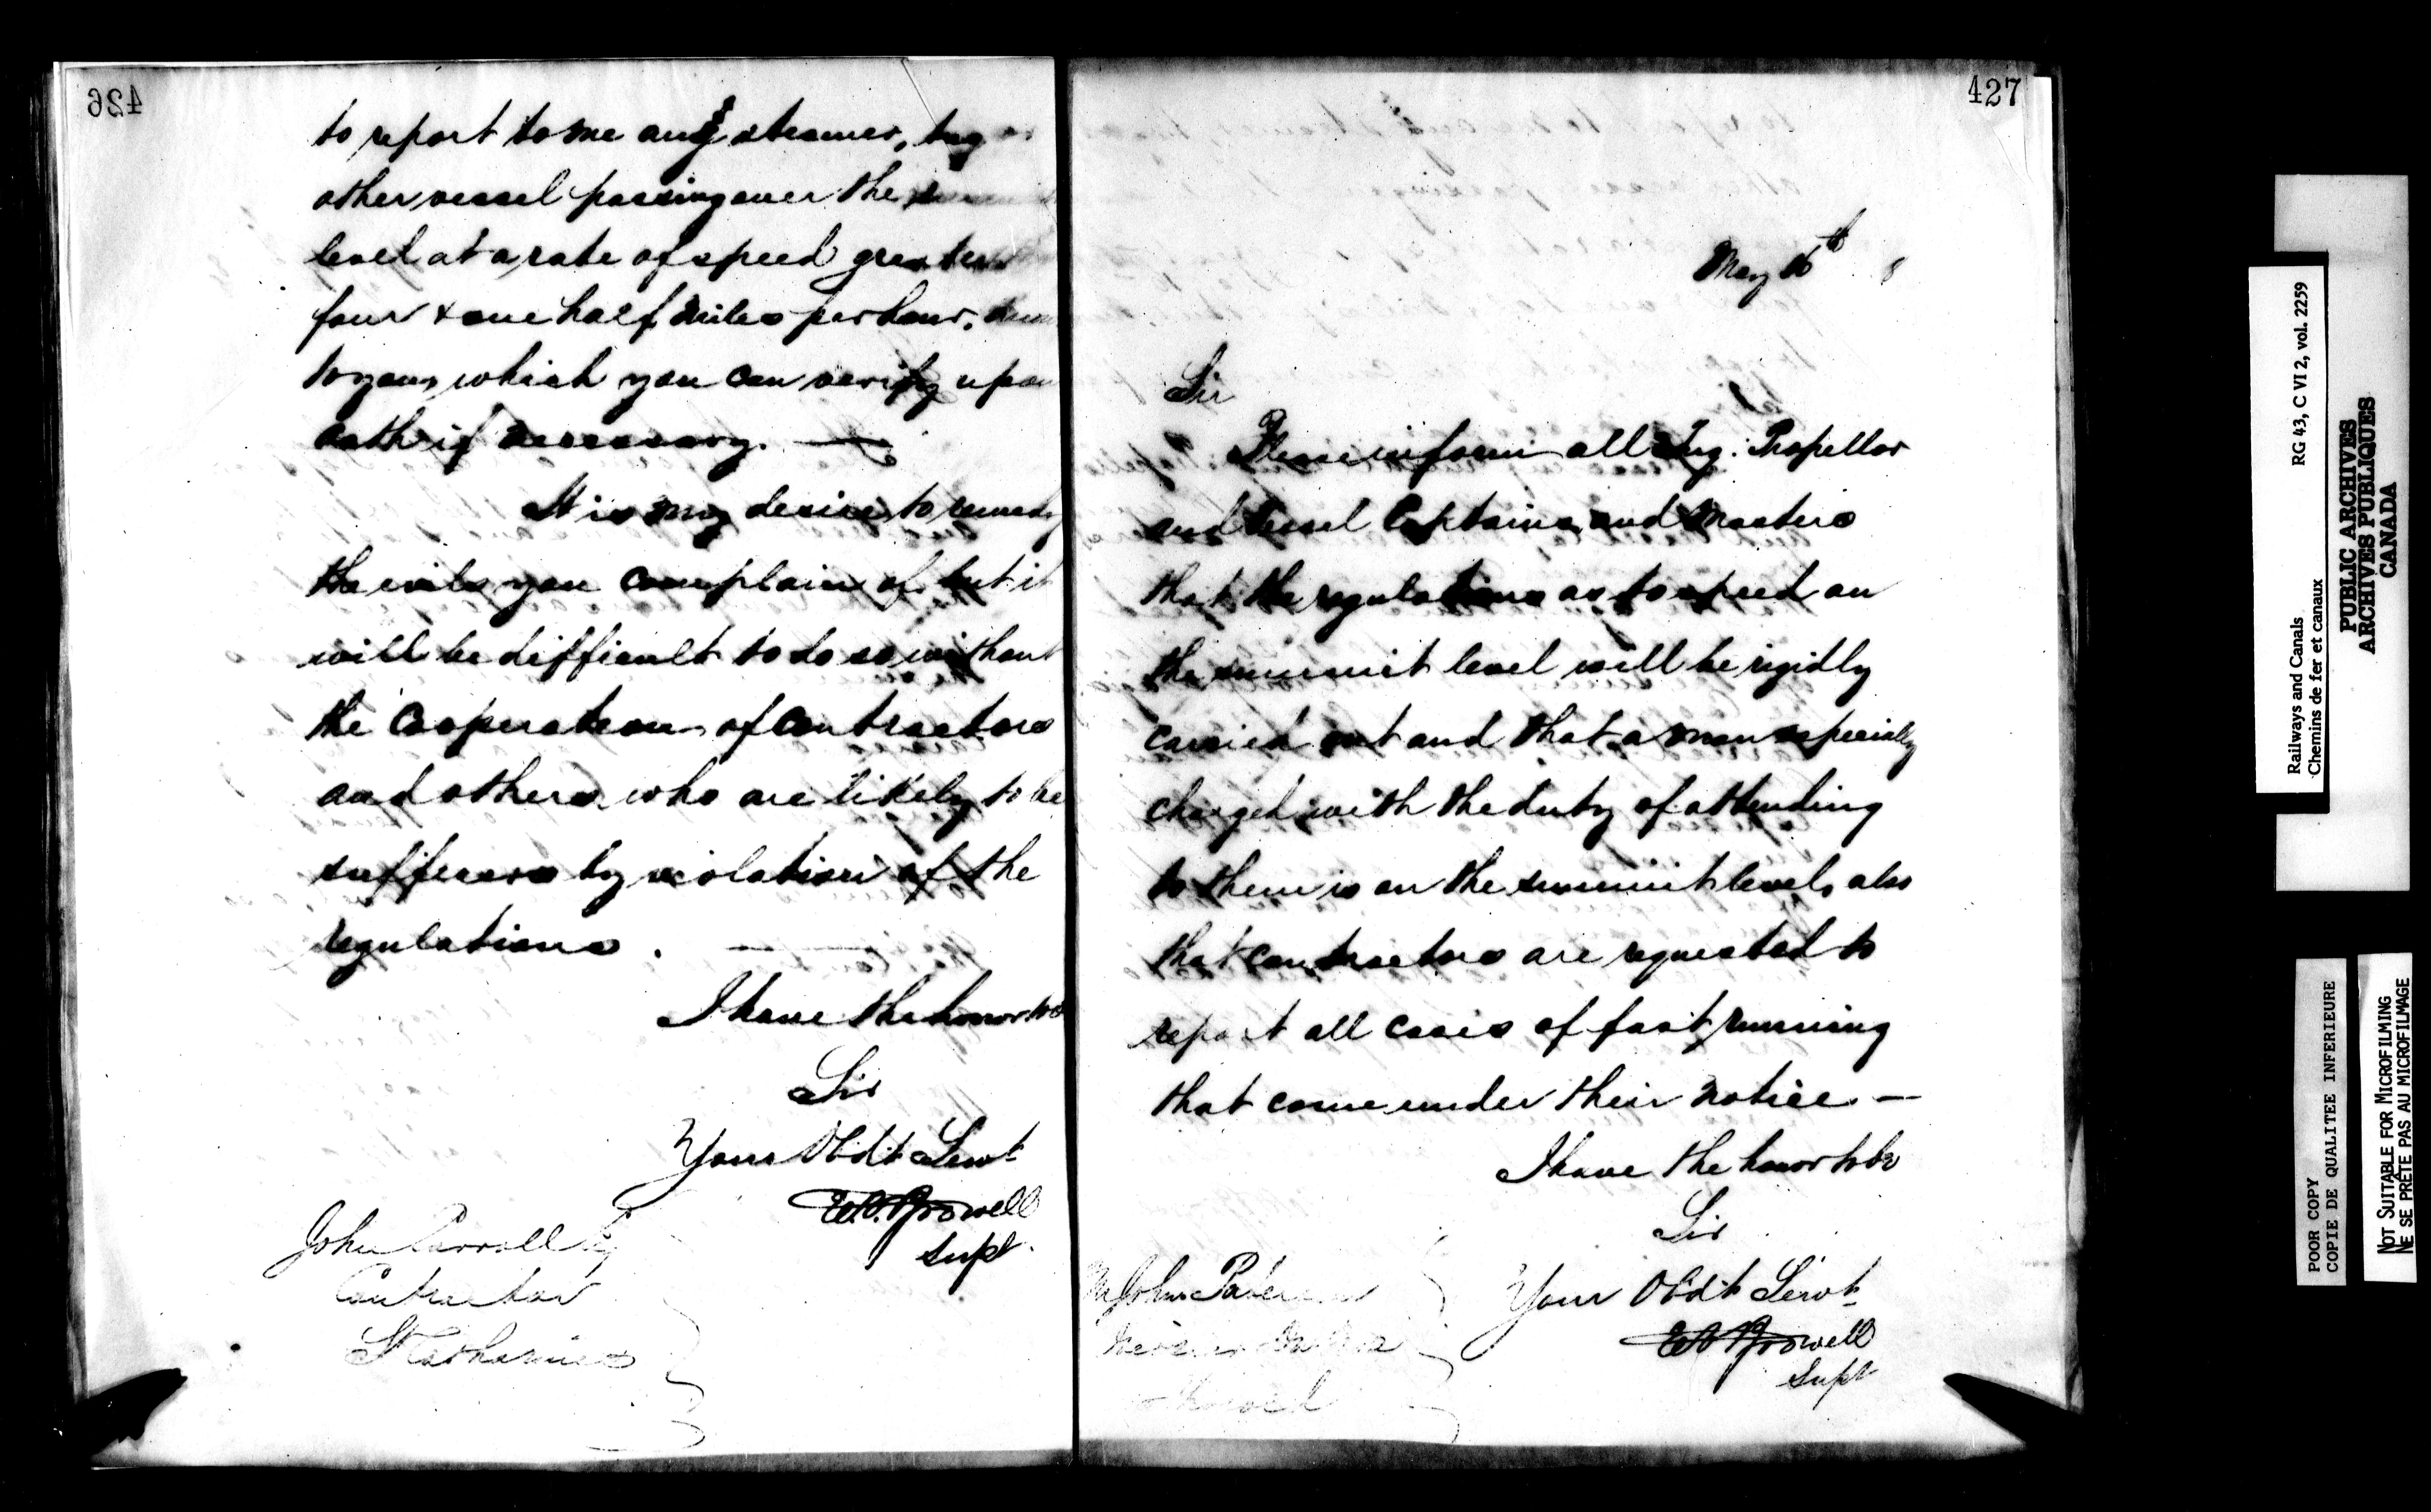 426
to report to me any steamer, tug or
other vessel passing over the
level at a rate of speed greater
four & one half miles per hour,
to you, which you can verify upon
oath if necessary. —
It is my desire to remedy
the evils you complain of but it
will be difficult to do so without
the Cooperation of Contractors
and others, who are likely to be
sufferers by violation of the
regulations. —
I have the honor to be
Sir
Your Obdt Servt
W. Bowell
Supt.
John Carroll Esq
Contractor
St Catharines
427
May 16th 8
Sir
Please inform all Tug. Propellor
and Vessel Captains and Masters
that the regulations as to speed on
the summit level will be rigidly
carried out and that a man specially
charged with the duty of attending
to them is on the summit level, also
that contractors are requested to
report all cases of fast running
that come under their notice. —
I have the honor to be
Sir
Your Obdt Servt
Bowell
Supt
Mr John
Thorold
Railways and Canals RG 43, C VI 2, vol. 2259
Chemins de fer et canaux
PUBLIC ARCHIVES
ARCHIVES PUBLIQUES
CANADA
POOR COPY
COPIE DE QUALITEE INFERIEURE
NOT SUITABLE FOR MICROFILMING
NE SE PRÊTE PAS AU MICROFILMAGE